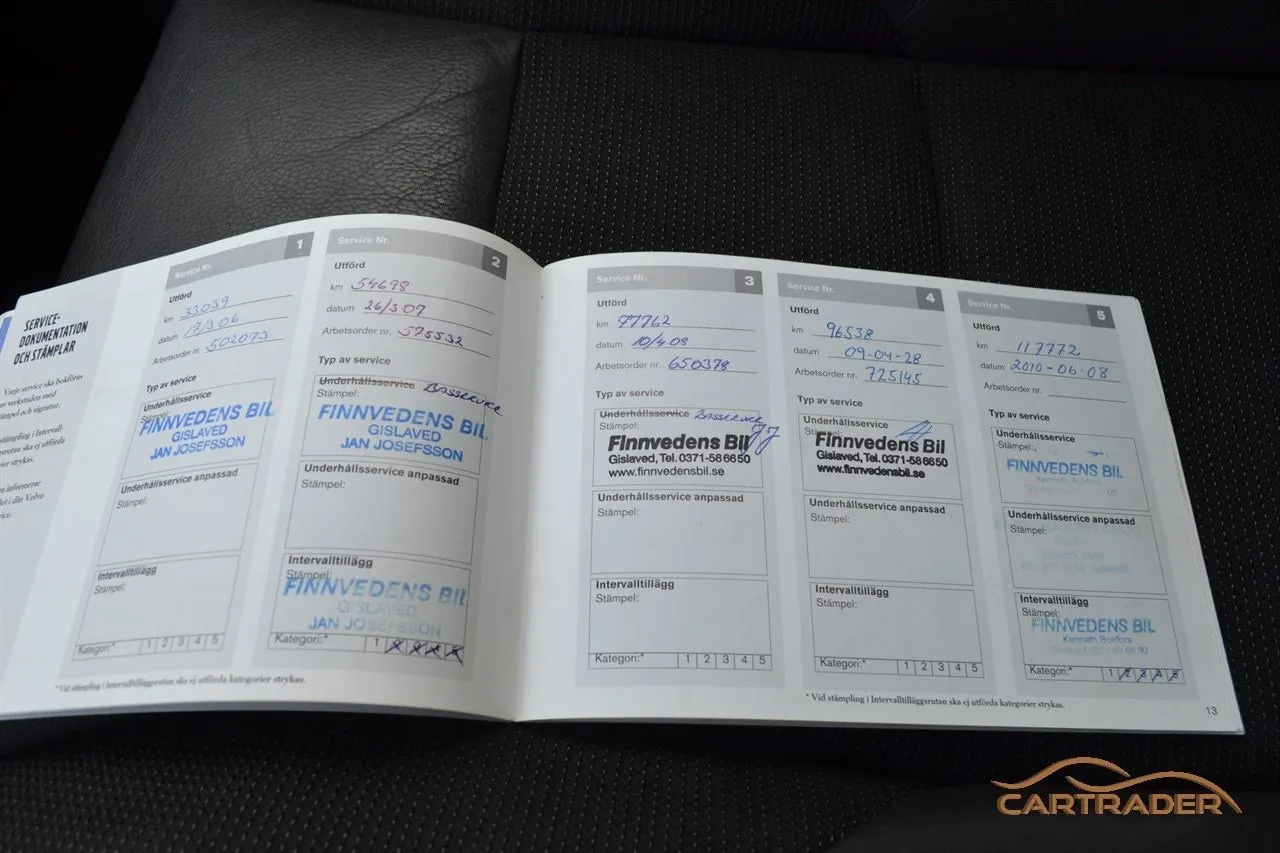 SERVICE-
DOKUMENTATION
OCH STÄMPLAR
Varje service ska bokföras
av verkstaden med
stämpel och signatur.
stämpling i Intervall-
srutan ska ej utförda
strykas.
informerar
det i din Volvo
Service Nr. 1
Utförd
km 33039
datum 17/3 06
Arbetsorder nr. 502073
Typ av service
Underhållsservice
Stämpel:
FINNVEDENS BIL
GISLAVED
JAN JOSEFSSON
Underhållsservice anpassad
Stämpel:
Intervalltillägg
Stämpel:
Kategori:* 1 2 3 4 5
Service Nr. 2
Utförd
km 54698
datum 26/3 07
Arbetsorder nr. 575532
Typ av service
Underhållsservice Basservice
Stämpel:
FINNVEDENS BIL
GISLAVED
JAN JOSEFSSON
Underhållsservice anpassad
Stämpel:
Intervalltillägg
Stämpel:
FINNVEDENS BIL
GISLAVED
JAN JOSEFSSON
Kategori:* 1 2 3 4 5
* Vid stämpling i Intervalltilläggsrutan ska ej utförda kategorier strykas.
Service Nr. 3
Utförd
km 77762
datum 10/4 08
Arbetsorder nr. 650378
Typ av service
Underhållsservice Basservice
Stämpel:
Finnvedens Bil
Gislaved, Tel. 0371-58 66 50
www.finnvedensbil.se
Underhållsservice anpassad
Stämpel:
Intervalltillägg
Stämpel:
Kategori:* 1 2 3 4 5
Service Nr. 4
Utförd
km 96538
datum 09-04-28
Arbetsorder nr. 725145
Typ av service
Underhållsservice
Stämpel:
Finnvedens Bil
Gislaved, Tel. 0371-58 66 50
www.finnvedensbil.se
Underhållsservice anpassad
Stämpel:
Intervalltillägg
Stämpel:
Kategori:* 1 2 3 4 5
Service Nr. 5
Utförd
km 117772
datum 2010-06-08
Arbetsorder nr.
Typ av service
Underhållsservice
Stämpel:
FINNVEDENS BIL
Kenneth
Underhållsservice anpassad
Stämpel:
Intervalltillägg
Stämpel:
FINNVEDENS BIL
Kenneth Boxfors
Kategori:* 1 2 3 4 5
* Vid stämpling i Intervalltilläggsrutan ska ej utförda kategorier strykas.
13
CARTRADER